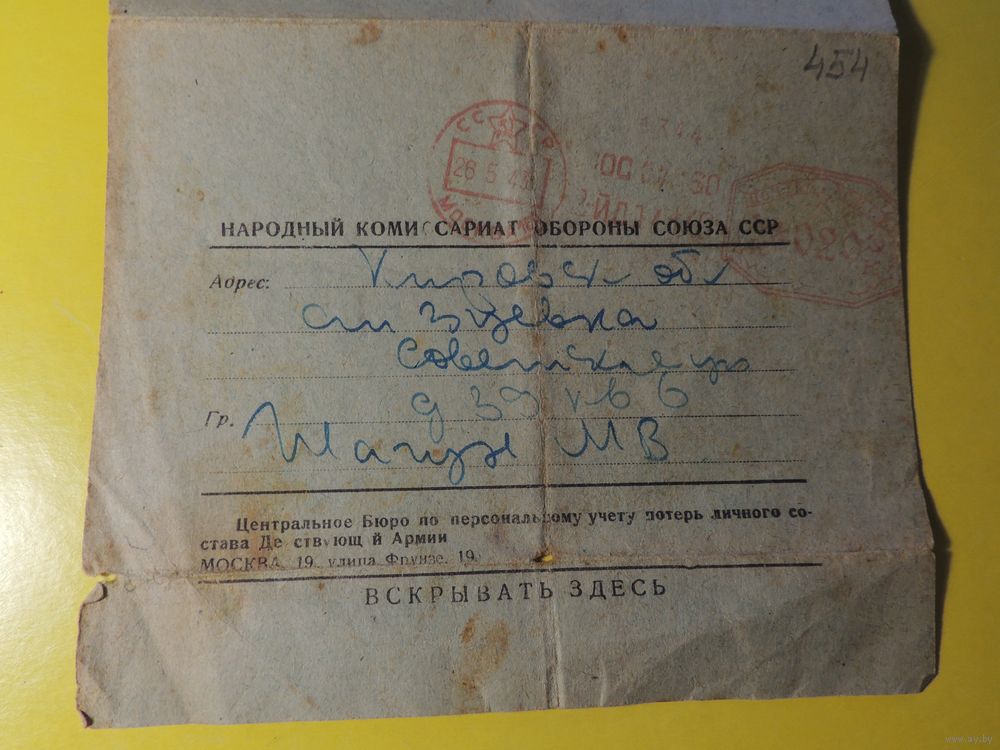 454
СССР
26 5 43
МОСКВА
НАРОДНЫЙ КОМИССАРИАТ ОБОРОНЫ СОЮЗА ССР
Адрес: Кировск обл
ст Зуевка
Советская
д 39 кв 6
Гр. М В
Центральное Бюро по персональному учету потерь личного со-
става Действующей Армии
МОСКВА, 19, улица Фрунзе, 19.
ВСКРЫВАТЬ ЗДЕСЬ
www.ay.by